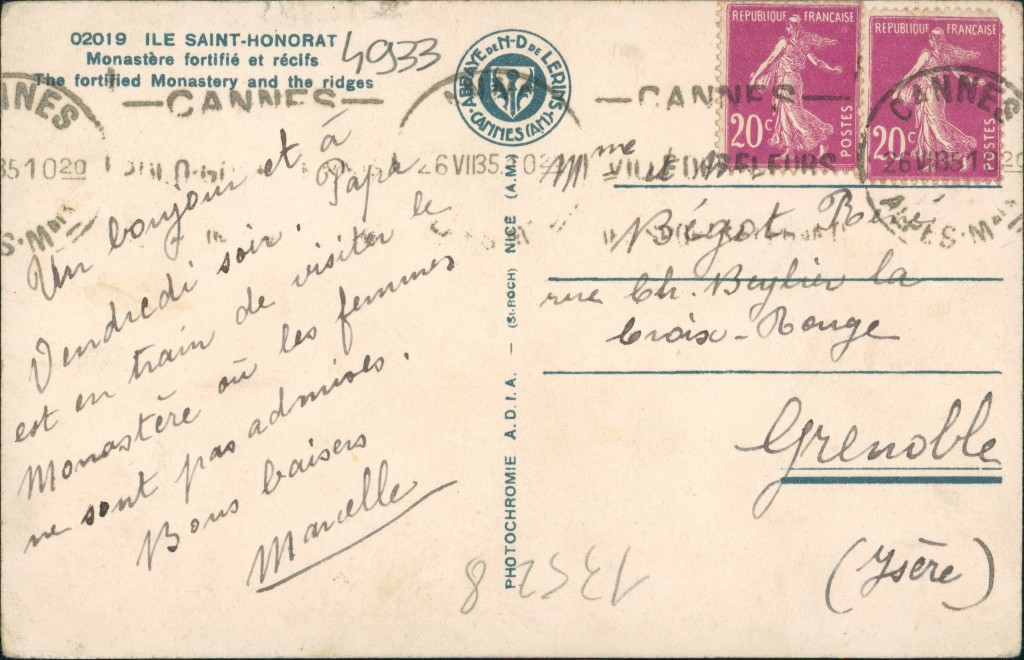 02019 ILE SAINT-HONORAT
Monastère fortifié et récifs
The fortified Monastery and the ridges
4933
ABBAYE DE N-D DE LERINS
CANNES (AM)
REPUBLIQUE FRANÇAISE
20c
POSTES
REPUBLIQUE FRANÇAISE
20c
POSTES
CANNES
26 VII 35
VILLE DES FLEURS
CANNES
26 VII 35
ALPES-Mmes
Un bonjour et à
Vendredi soir. Papa
est en train de visiter le
Monastère où les femmes
ne sont pas admises.
Bons baisers
Marcelle
PHOTOCHROMIE A.D.I.A. - (St-ROCH) NICE (A.M.)
Mme et Mr
Bégot René
rue Ch. Beylier la
Croix-Rouge
Grenoble
(Isère)
13528